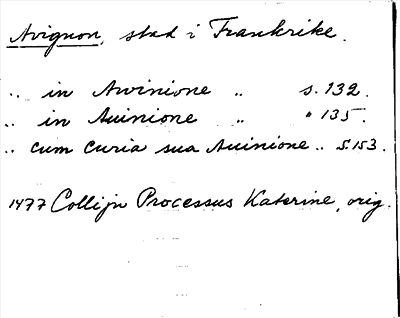 Avignon, stad i Frankrike.
.. in Avinione .. s. 132.
.. in Auinione .. " 135.
.. cum curia sua Auinione .. S. 153.
1477 Collijn Processus Katerine, orig.